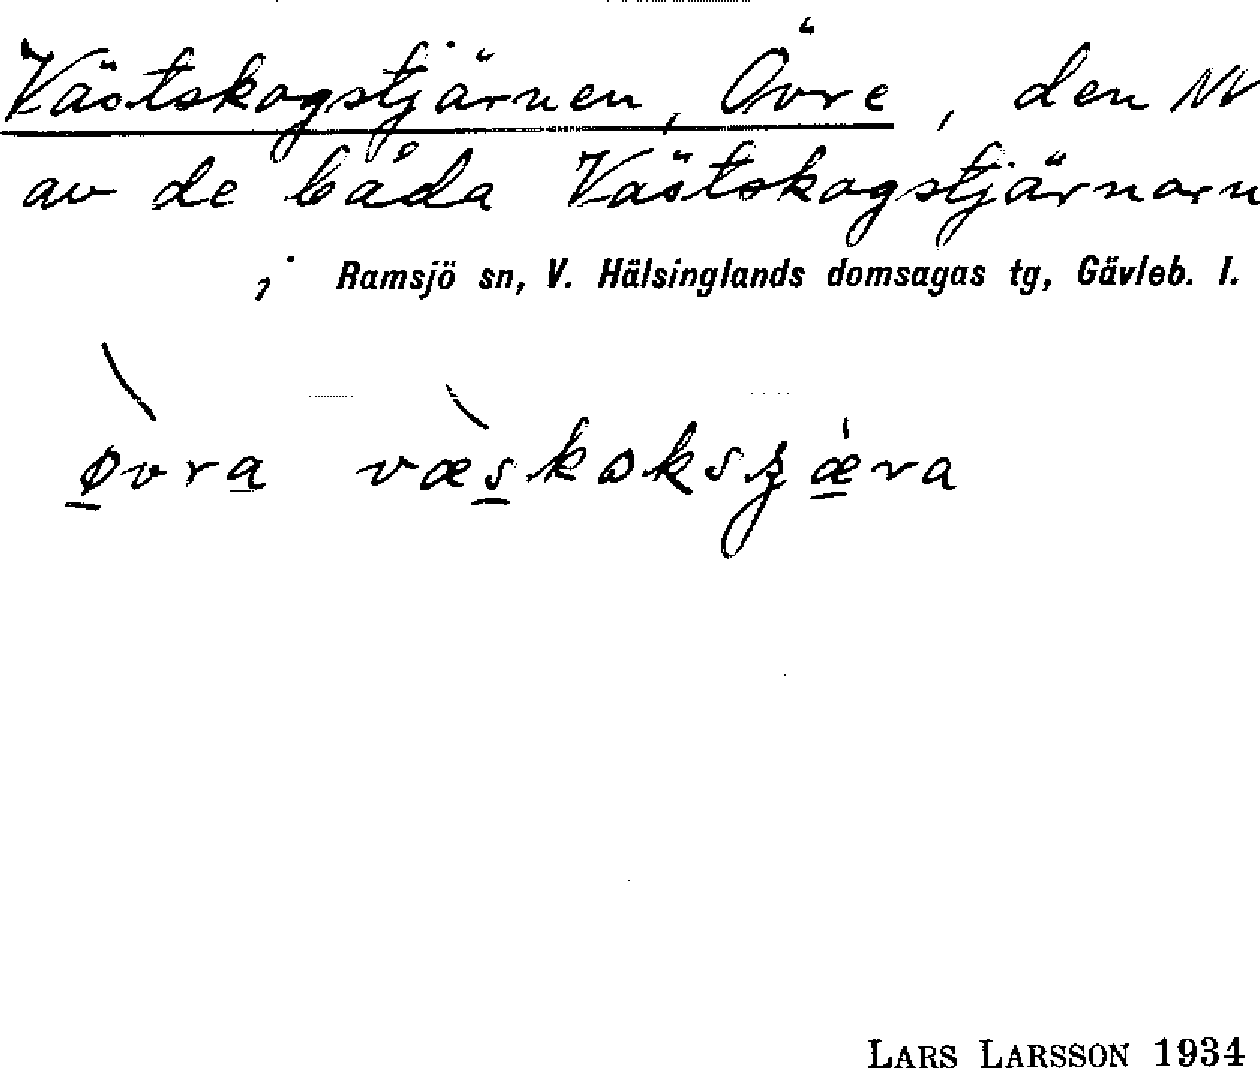 Västskogstjärnen, Övre, den NV
av de båda Västskogstjärnarn
i Ramsjö sn, V. Hälsinglands domsagas tg, Gävleb. l.
øvra væskɷksʒæra
LARS LARSSON 1934